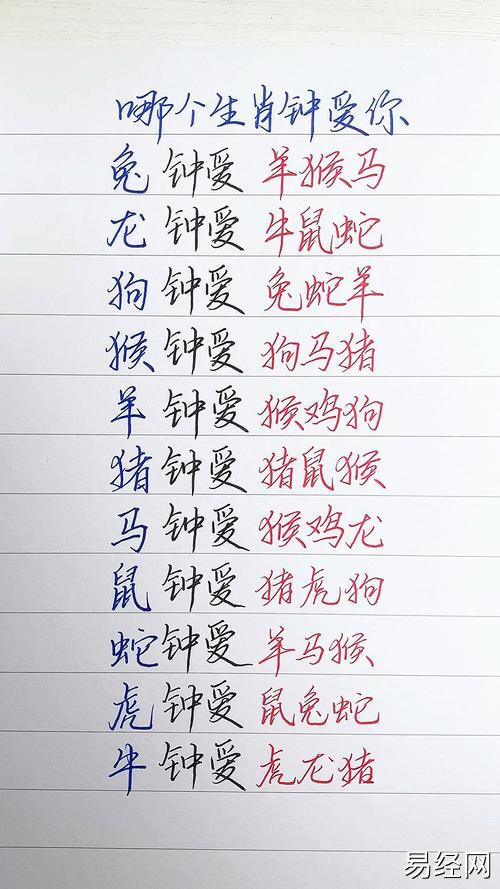 哪个生肖钟爱你
兔 钟爱 羊猴马
龙 钟爱 牛鼠蛇
狗 钟爱 兔蛇羊
猴 钟爱 狗马猪
羊 钟爱 猴鸡狗
猪 钟爱 猪鼠猴
马 钟爱 猴鸡龙
鼠 钟爱 猪虎狗
蛇 钟爱 羊马猴
虎 钟爱 鼠兔蛇
牛 钟爱 虎龙猪
易经网